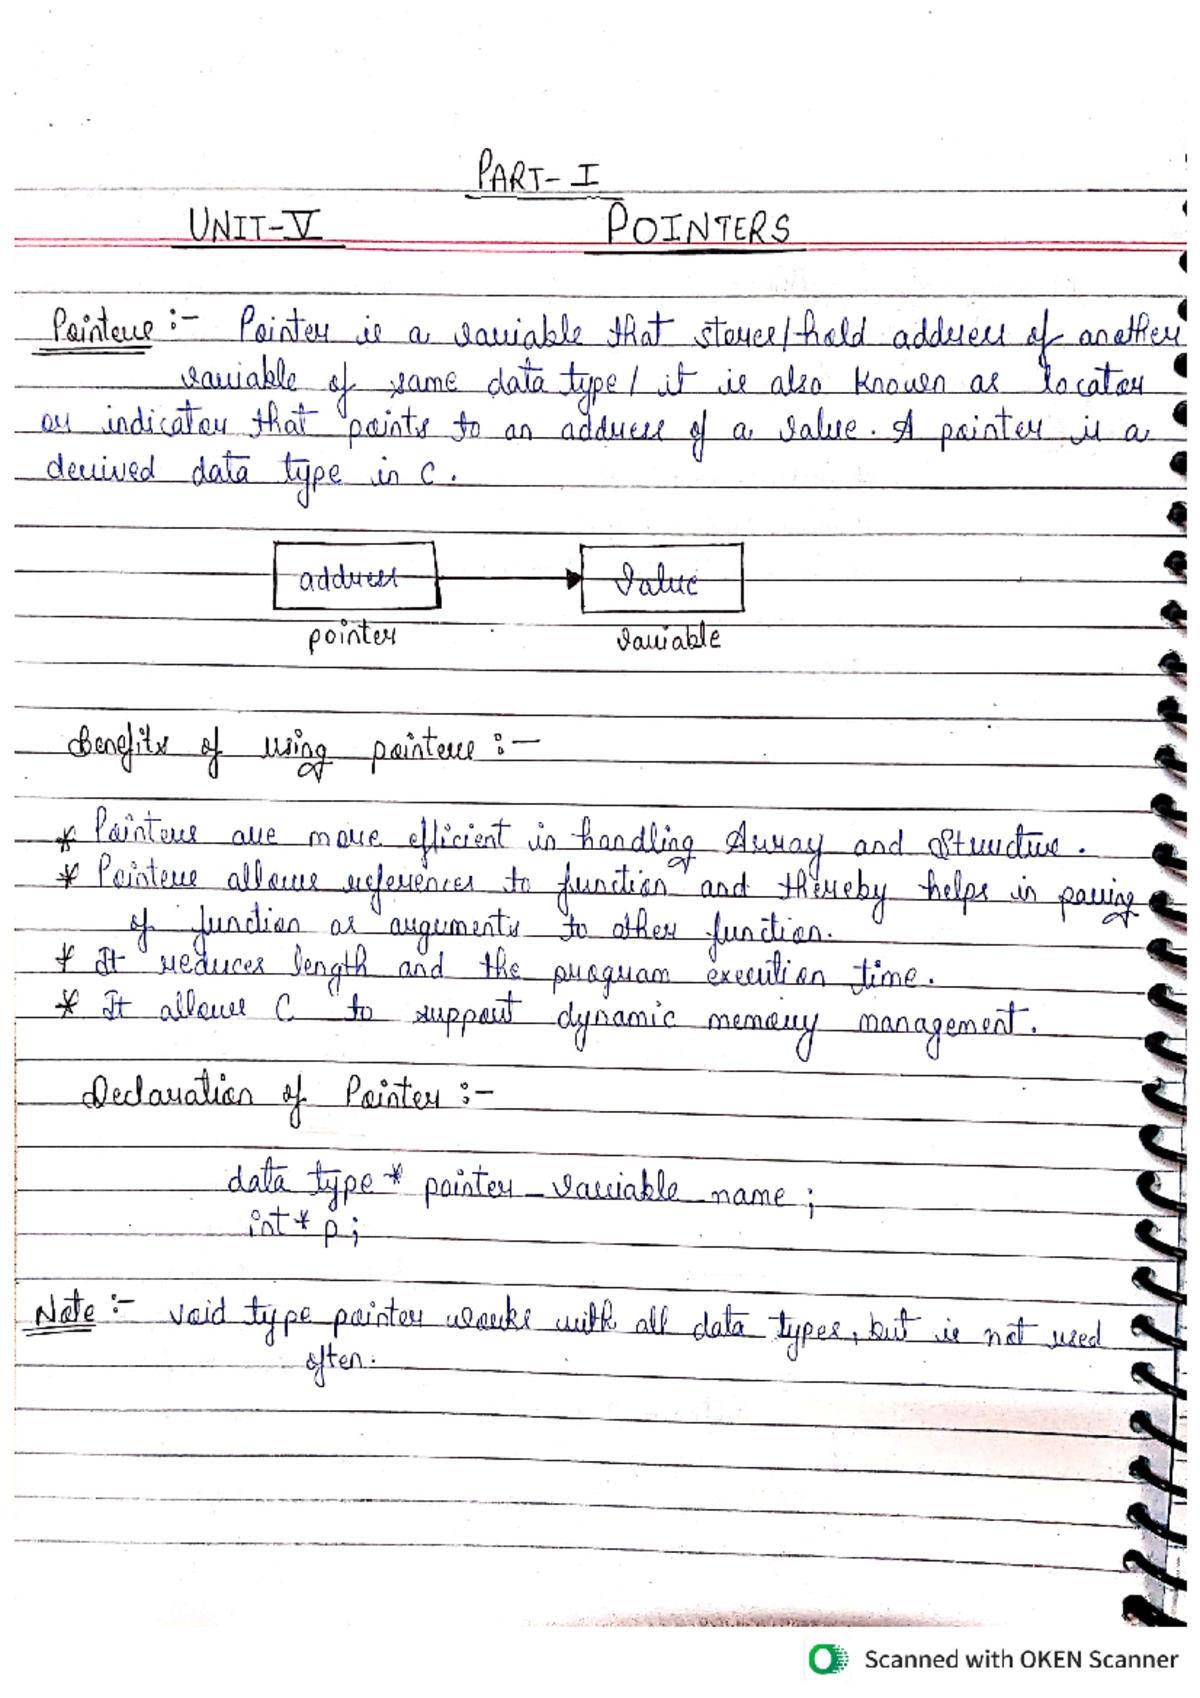 PART- I
UNIT-V POINTERS
Pointers :- Pointer is a variable that stores/hold address of another
variable of same data type/ it is also known as locator
or indicator that points to an address of a value. A pointer is a
derived data type in C.
address value
pointer variable
Benefits of using pointers :-
* Pointers are more efficient in handling Array and Structure.
* Pointers allows references to function and thereby helps in passing
of function as arguments to other function.
* It reduces length and the program execution time.
* It allows C to support dynamic memory management.
Declaration of Pointer :-
data type * pointer_variable_name ;
int * p ;
Note :- void type pointer works with all data types, but is not used
often.
Scanned with OKEN Scanner